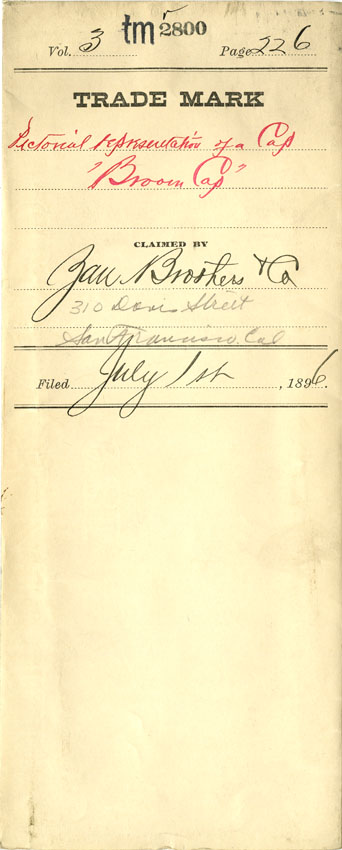 tm 2800
Vol. 3 Page 226
TRADE MARK
Pictorial representation of a Cap
"Broom Cap"
CLAIMED BY
Zan Brothers & Co
310 Davis Street
San Francisco, Cal
Filed July 1st, 1896.